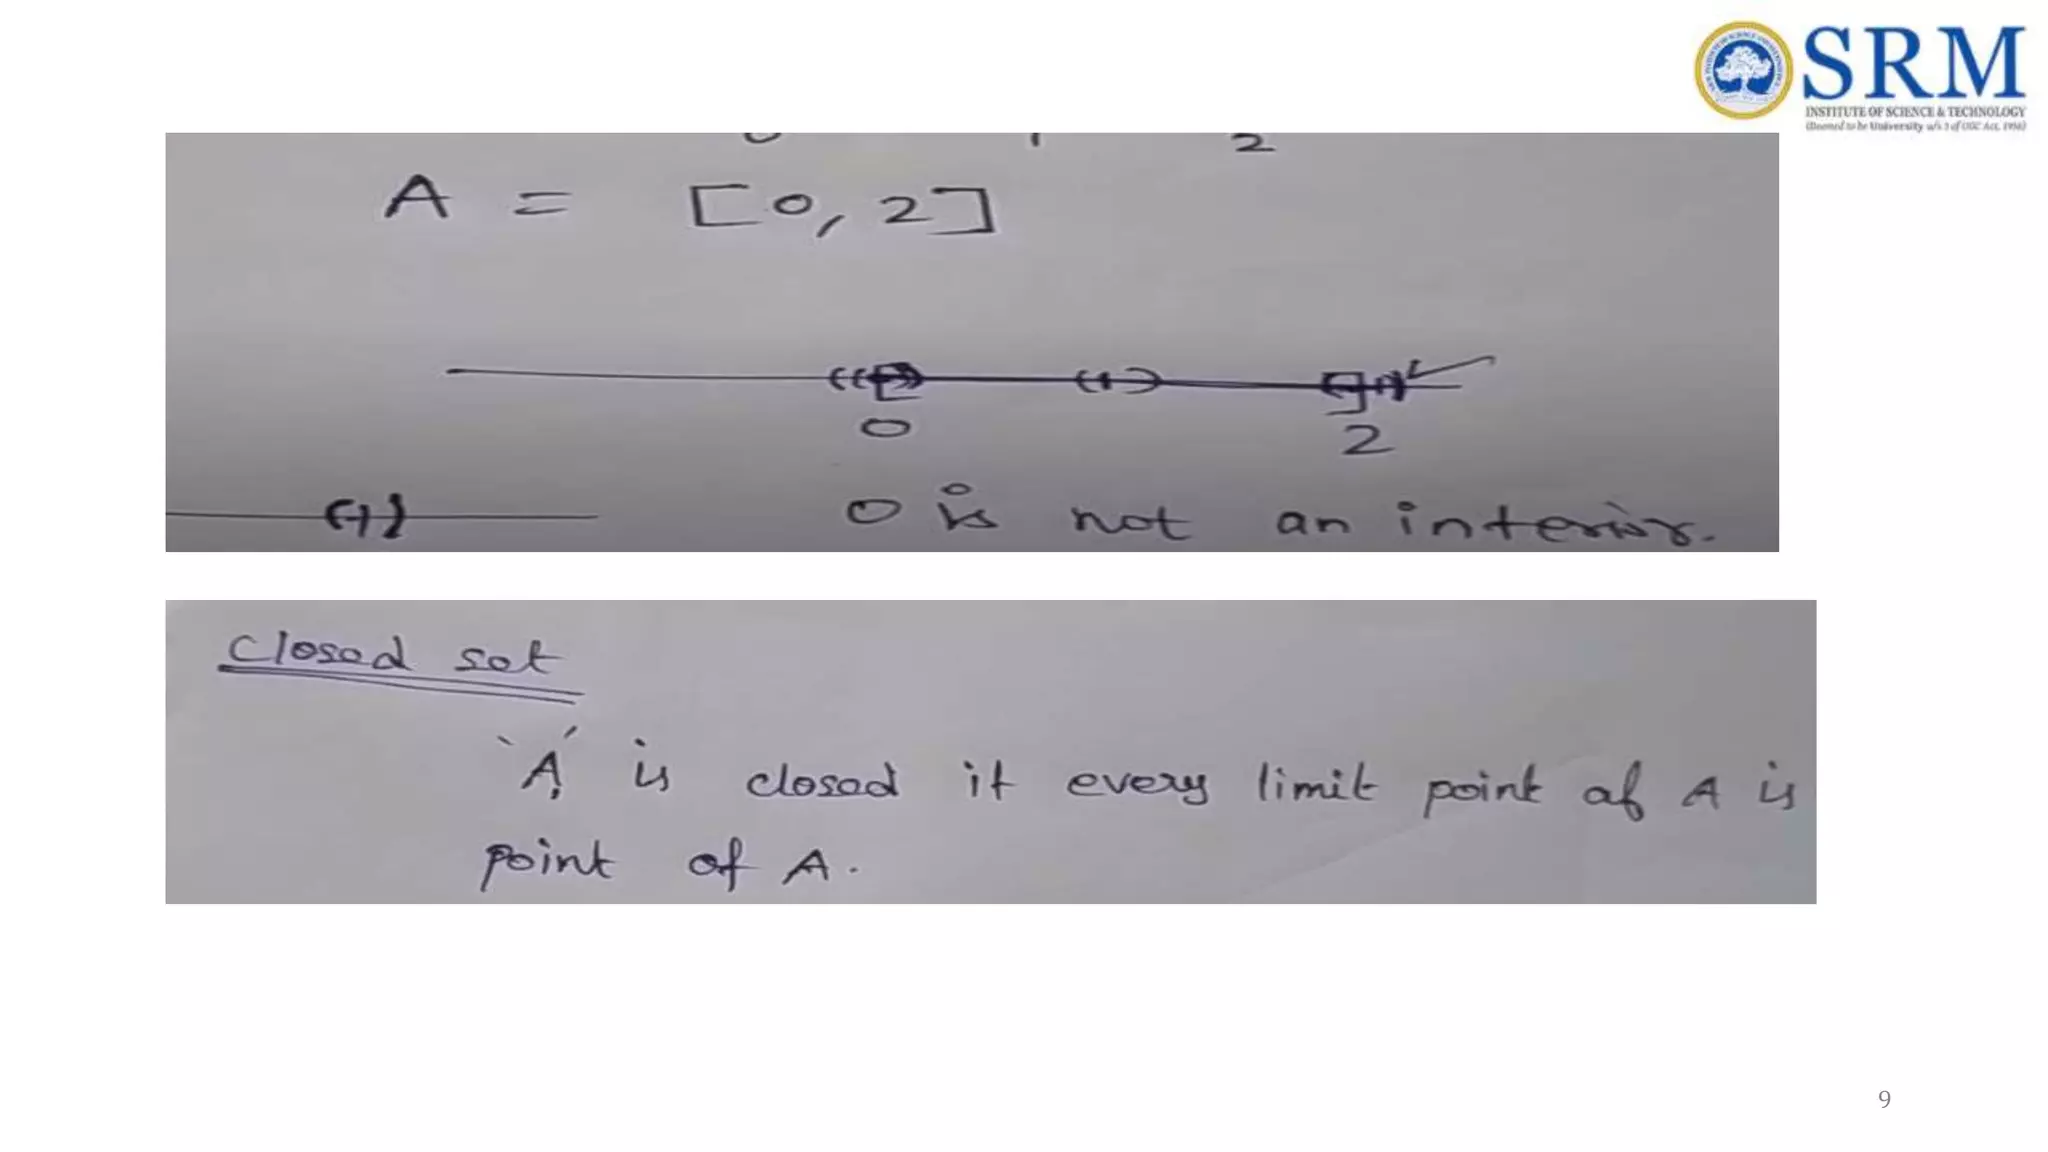 SRM
INSTITUTE OF SCIENCE & TECHNOLOGY
(Deemed to be University u/s 3 of UGC Act, 1956)
2
A = [0, 2]
0 2
0 is not an interior.
Closed set
'A' is closed if every limit point of A is
point of A.
9